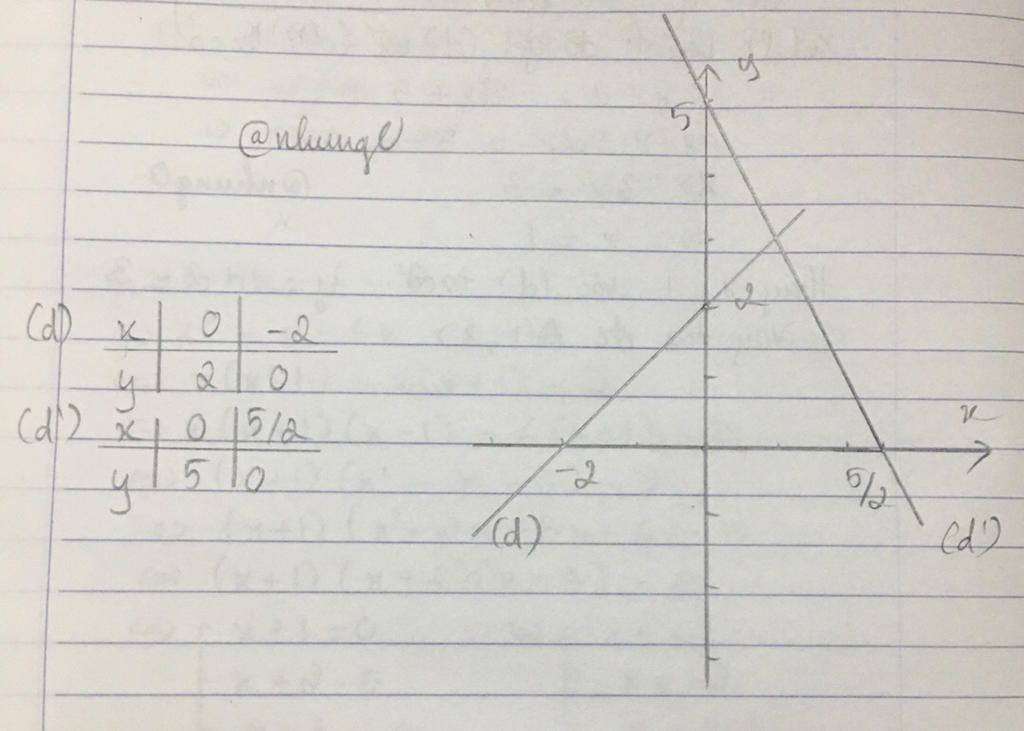 @nhungl
(d) x | 0 | -2
y | 2 | 0
(d') x | 0 | 5/2
y | 5 | 0
y
5
2
x
-2
5/2
(d)
(d')